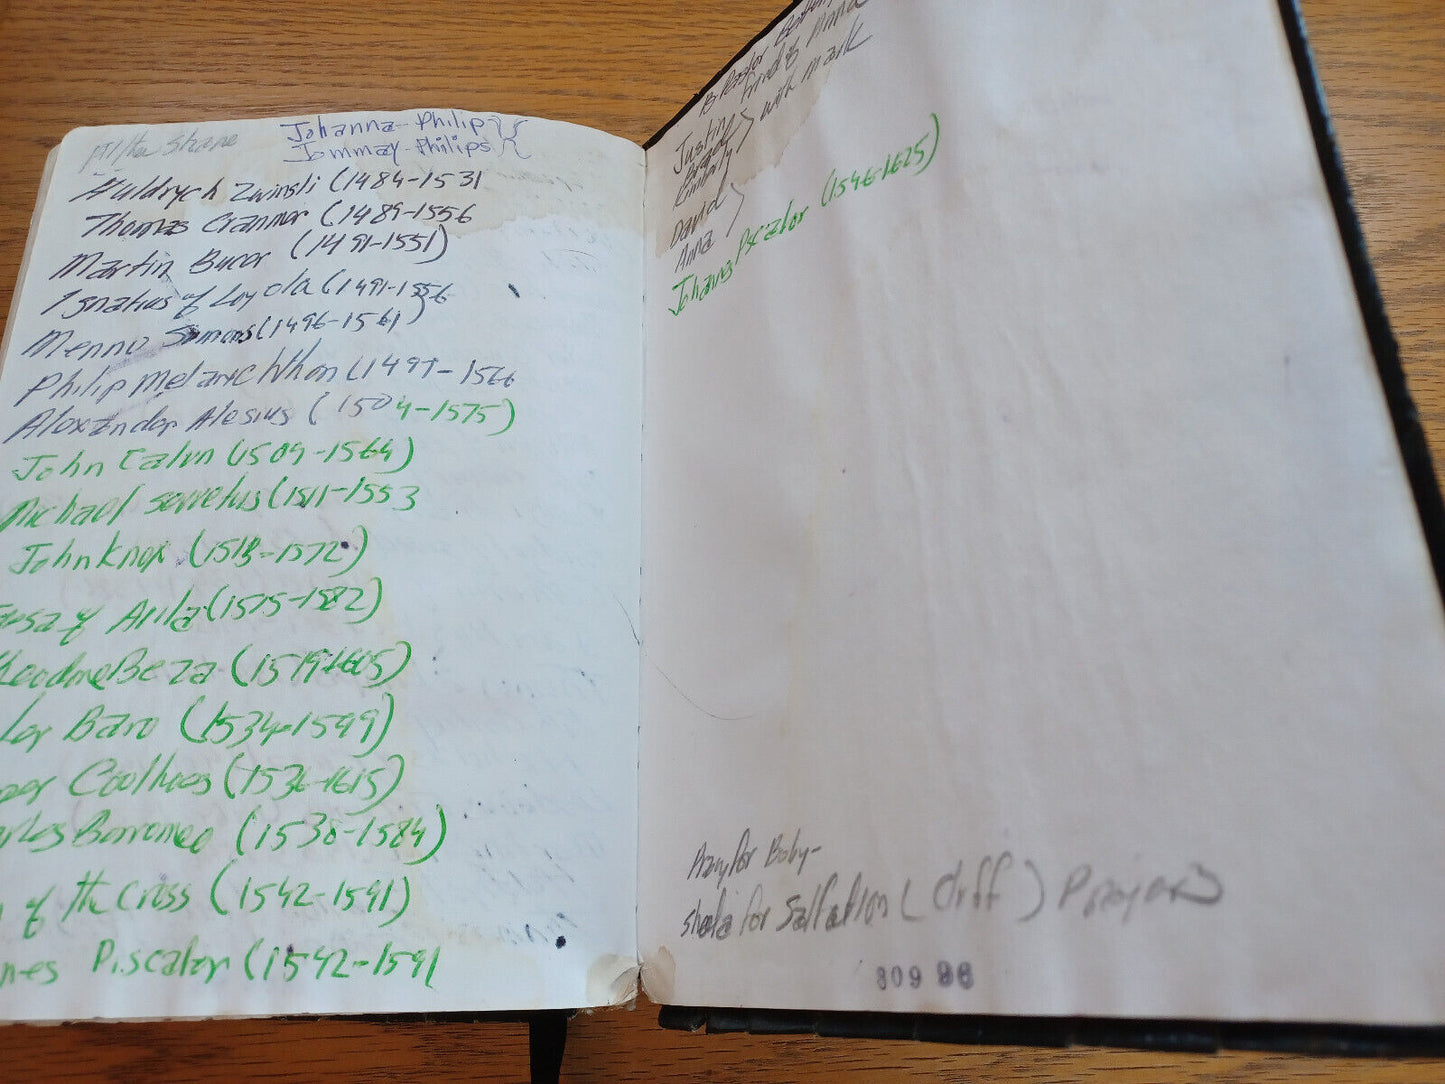 Shane
Johanna-Philip
Jommay-Philips
Huldrych Zwinsli (1484-1531
Thomas Cranmor (1489-1556
Martin Bucor (1491-1551)
Ignatius of Loyola (1491-1556
Menno Simons (1496-1561)
Philip Melanchthon (1497-1566
Aloxander Alesius (1504-1575)
John Calvn (1509-1564)
Michael servetus (1511-1553
John Knox (1513-1572)
of Avila (1515-1582)
Beza (1519-1605)
Baro (1534-1599)
Coolhaes (1536-1615)
Borromeo (1538-1584)
of the Cross (1542-1591)
nes Piscator (1542-1591
Pastor
Anna
with Mark
Justin
Brady
David
Anna
Johans Piscator (1546-1625)
Pray for Boby-
for Salfation (Cliff) Prayers
809 96